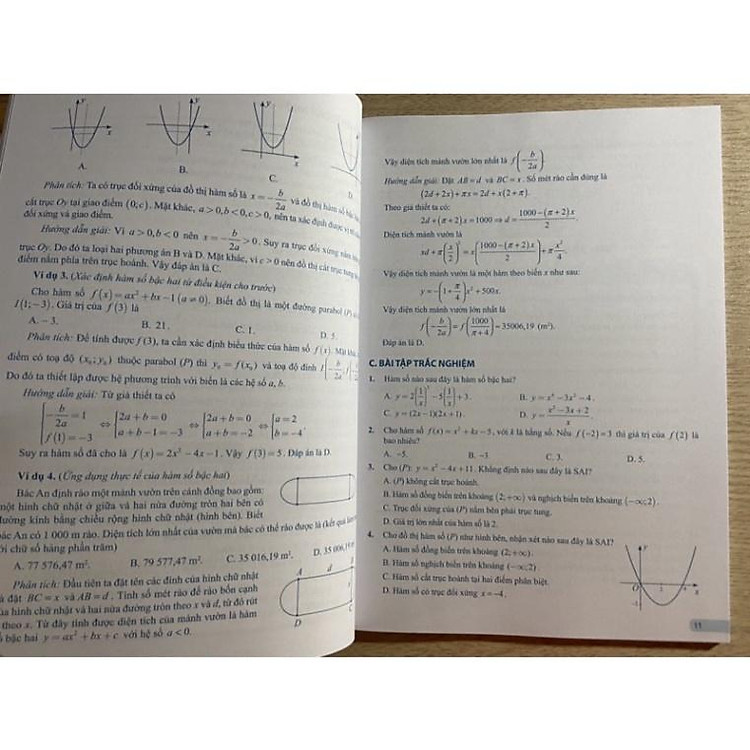 y y y
x x x
A. B. C. D.
Phân tích: Ta có trục đối xứng của đồ thị hàm số là x = −b/2a và đồ thị hàm số bậc
cắt trục Oy tại giao điểm (0;c). Mặt khác, a > 0, b < 0, c > 0, nên ta xác định được vị
đối xứng và giao điểm.
Hướng dẫn giải: Vì a > 0, b < 0 nên x = −b/2a > 0. Suy ra trục đối xứng nằm
trục Oy. Do đó ta loại hai phương án B và D. Mặt khác, vì c > 0 nên đồ thị cắt trục tung
điểm nằm phía trên trục hoành. Vậy đáp án là C.
Ví dụ 3. (Xác định hàm số bậc hai từ điều kiện cho trước)
Cho hàm số f(x) = ax² + bx − 1 (a ≠ 0). Biết đồ thị là một đường parabol (P)
I(1;−3). Giá trị của f(3) là
A. −3. B. 21. C. 1. D. 5.
Phân tích: Để tính được f(3), ta cần xác định biểu thức của hàm số f(x). Mặt
điểm có toạ độ (x₀; y₀) thuộc parabol (P) thì y₀ = f(x₀) và toạ độ đỉnh
Do đó ta thiết lập được hệ phương trình với biến là các hệ số a, b.
Hướng dẫn giải: Từ giả thiết ta có
{−b/2a = 1; f(1) = −3 ⇔ {2a + b = 0; a + b − 1 = −3 ⇔ {2a + b = 0; a + b = −2 ⇔ {a = 2; b = −4.
Suy ra hàm số đã cho là f(x) = 2x² − 4x − 1. Vậy f(3) = 5. Đáp án D.
Ví dụ 4. (Ứng dụng thực tế của hàm số bậc hai)
Bác An định rào một mảnh vườn trên cánh đồng bao gồm:
một hình chữ nhật ở giữa và hai nửa đường tròn hai bên có
đường kính bằng chiều rộng hình chữ nhật (hình bên). Biết
bác An có 1 000 m rào. Diện tích lớn nhất của vườn mà bác có thể rào được là (kết quả
với chữ số hàng phần trăm)
A. 77 576,47 m². B. 79 577,47 m². C. 35 016,19 m². D. 35 006,19 m
Phân tích: Đầu tiên ta đặt tên các đỉnh của hình chữ nhật
và đặt BC = x và AB = d. Tính số mét rào để rào bốn cạnh
của hình chữ nhật và hai nửa đường tròn theo x và d, từ đó rút
d theo x. Từ đây tính được diện tích của mảnh vườn là hàm
số bậc hai y = ax² + bx + c với hệ số a < 0.
A d B
D C
Vậy diện tích mảnh vườn lớn nhất là f(−b/2a).
Hướng dẫn giải: Đặt AB = d và BC = x. Số mét rào cần dùng là
(2d + 2x) + πx = 2d + x(2 + π).
Theo giả thiết ta có:
2d + (π + 2)x = 1000 ⇒ d = (1000 − (π + 2)x)/2.
Diện tích mảnh vườn là
xd + π(x/2)² = x(1000 − (π + 2)x)/2 + πx²/4.
Vậy diện tích mảnh vườn là một hàm theo biến x như sau:
y = −(1 + π/4)x² + 500x.
Vậy diện tích mảnh vườn lớn nhất là
f(−b/2a) = f(1000/(π + 4)) = 35006,19 (m²).
Đáp án là D.
C. BÀI TẬP TRẮC NGHIỆM
1. Hàm số nào sau đây là hàm số bậc hai?
A. y = 2(1/x)² − 5(1/x) + 3. B. y = x⁴ − 3x² − 4.
C. y = (2x − 1)(2x + 1). D. y = (x² − 3x + 2)/x.
2. Cho hàm số f(x) = x² + kx − 5, với k là hằng số. Nếu f(−2) = 3 thì giá trị của f(2) là
bao nhiêu?
A. −5. B. −3 C. 3. D. 5.
3. Cho (P): y = x² − 4x + 11. Khẳng định nào sau đây là SAI?
A. (P) không cắt trục hoành.
B. Hàm số đồng biến trên khoảng (2;+∞) và nghịch biến trên khoảng (−∞;2).
C. Trục đối xứng của (P) nằm bên phải trục tung.
D. Giá trị lớn nhất của hàm số là 2.
4. Cho đồ thị hàm số (P) như hình bên, nhận xét nào sau đây là SAI?
A. Hàm số đồng biến trên khoảng (2;+∞).
B. Hàm số nghịch biến trên khoảng (−∞;2).
C. Hàm số cắt trục hoành tại hai điểm phân biệt.
D. Hàm số có trục đối xứng x = −4.
y
O 2 4 x
11